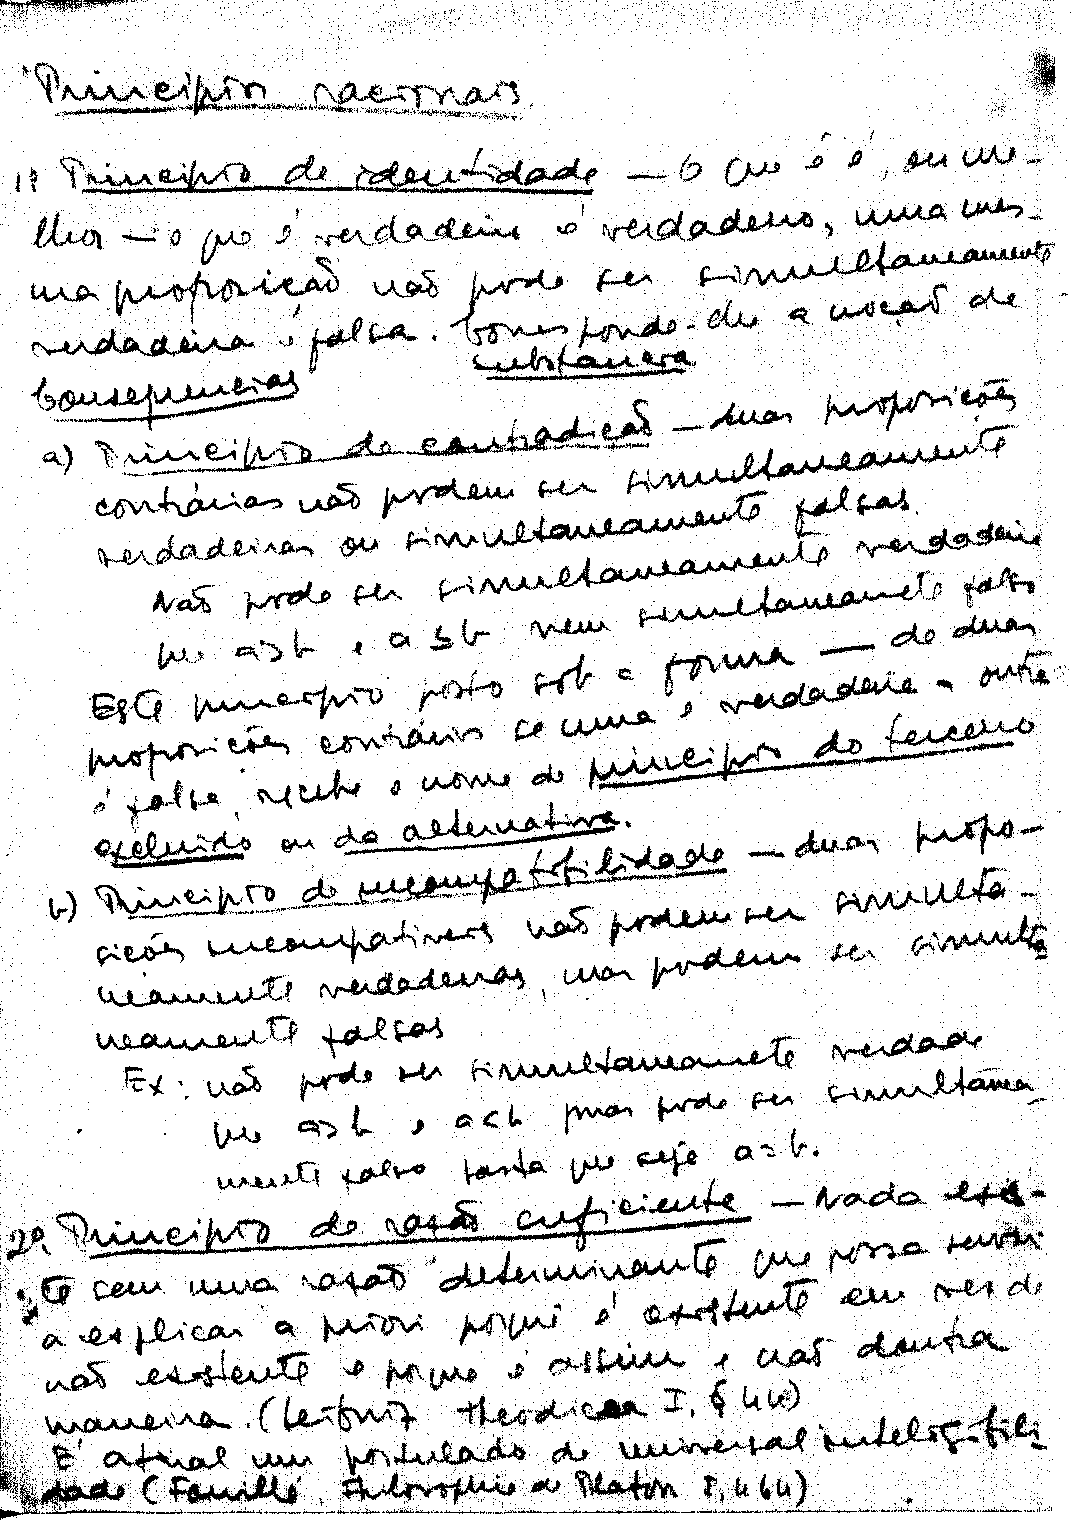 Principios racionais
1º Principio de identidade — o que é é, ou me-
lhor — o que é verdadeiro é verdadeiro, uma mes-
ma proposição não pode ser simultaneamente
verdadeira e falsa. Corresponde-lhe a noção de
substancia
Consequencias
a) Principio de contradição — duas proposições
contrárias não podem ser simultaneamente
verdadeiras ou simultaneamente falsas.
Não pode ser simultaneamente verdadeiro
que a>b e a ≤ b nem simultaneamente falso
Este principio posto sob a forma — de duas
proposições contrárias se uma é verdadeira a outra
é falsa, recebe o nome de principio do terceiro
excluido ou da alternativa.
b) Principio de incompatibilidade — duas propo-
sições incompativeis não podem ser simulta-
neamente verdadeiras, mas podem ser simulta-
neamente falsas
Ex: não pode ser simultaneamente verdade
que a>b e a<b mas pode ser simultanea-
mente falso basta que seja a=b.
2º. Principio de razão suficiente — Nada exis-
te sem uma razão determinante que possa servir
a explicar a priori porque é existente em vez de
não existente e porque é assim e não doutra
maneira. (Leibniz Theodicea I, § 44)
É afinal um postulado de universal inteligibili-
dade (Fouillé, Philosophie de Platon I, 464)